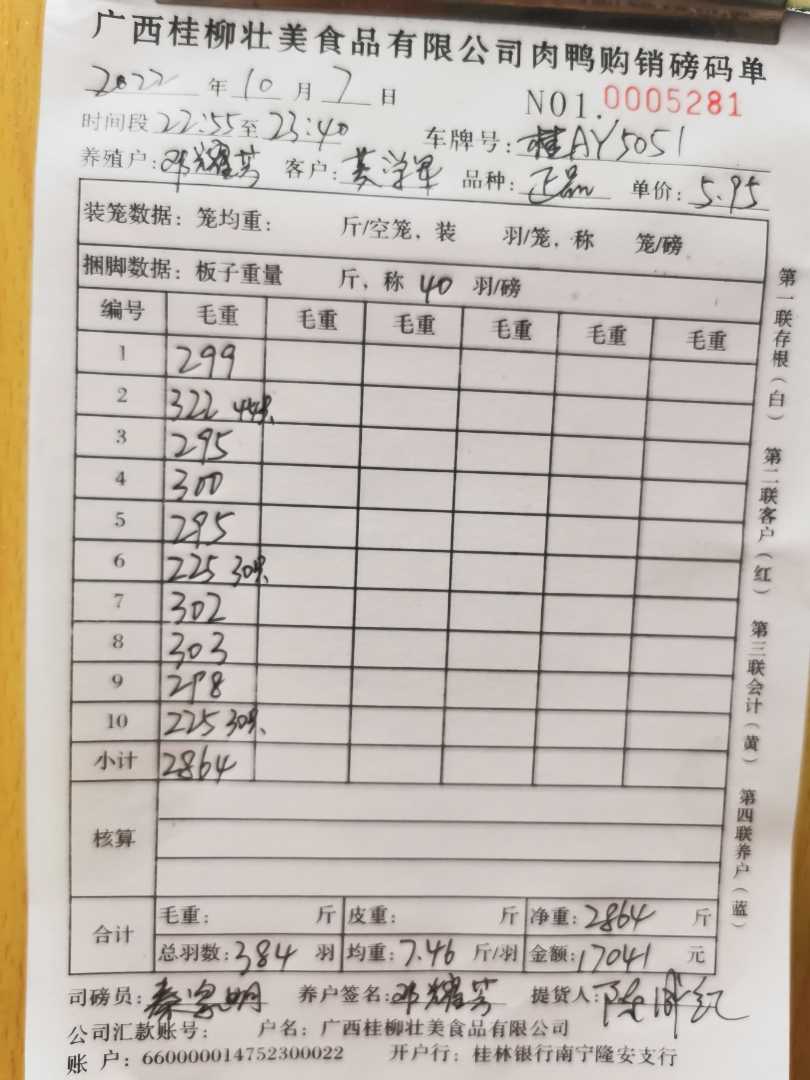 广西桂柳壮美食品有限公司肉鸭购销磅码单
2022 年 10 月 7 日 NO1. 0005281
时间段 22:55 至 23:40 车牌号: 桂AY5051
养殖户: 邓耀芳 客户: 黄学军 品种: 正品 单价: 5.95
装笼数据: 笼均重: 斤/空笼, 装 羽/笼, 称 笼/磅
捆脚数据: 板子重量 斤, 称 40 羽/磅
编号 毛重 毛重 毛重 毛重 毛重 毛重
1 299
2 322 44只
3 295
4 300
5 295
6 225 30只
7 302
8 303
9 298
10 225 30只
小计 2864
核算
合计 毛重: 斤 皮重: 斤 净重: 2864 斤
总羽数: 384 羽 均重: 7.46 斤/羽 金额: 17041 元
司磅员: 秦 明 养户签名: 邓耀芳 提货人: 陈 红
公司汇款账号: 户名: 广西桂柳壮美食品有限公司
账 户: 660000014752300022 开户行: 桂林银行南宁隆安支行
第一联存根(白) 第二联客户(红) 第三联会计(黄) 第四联养户(蓝)